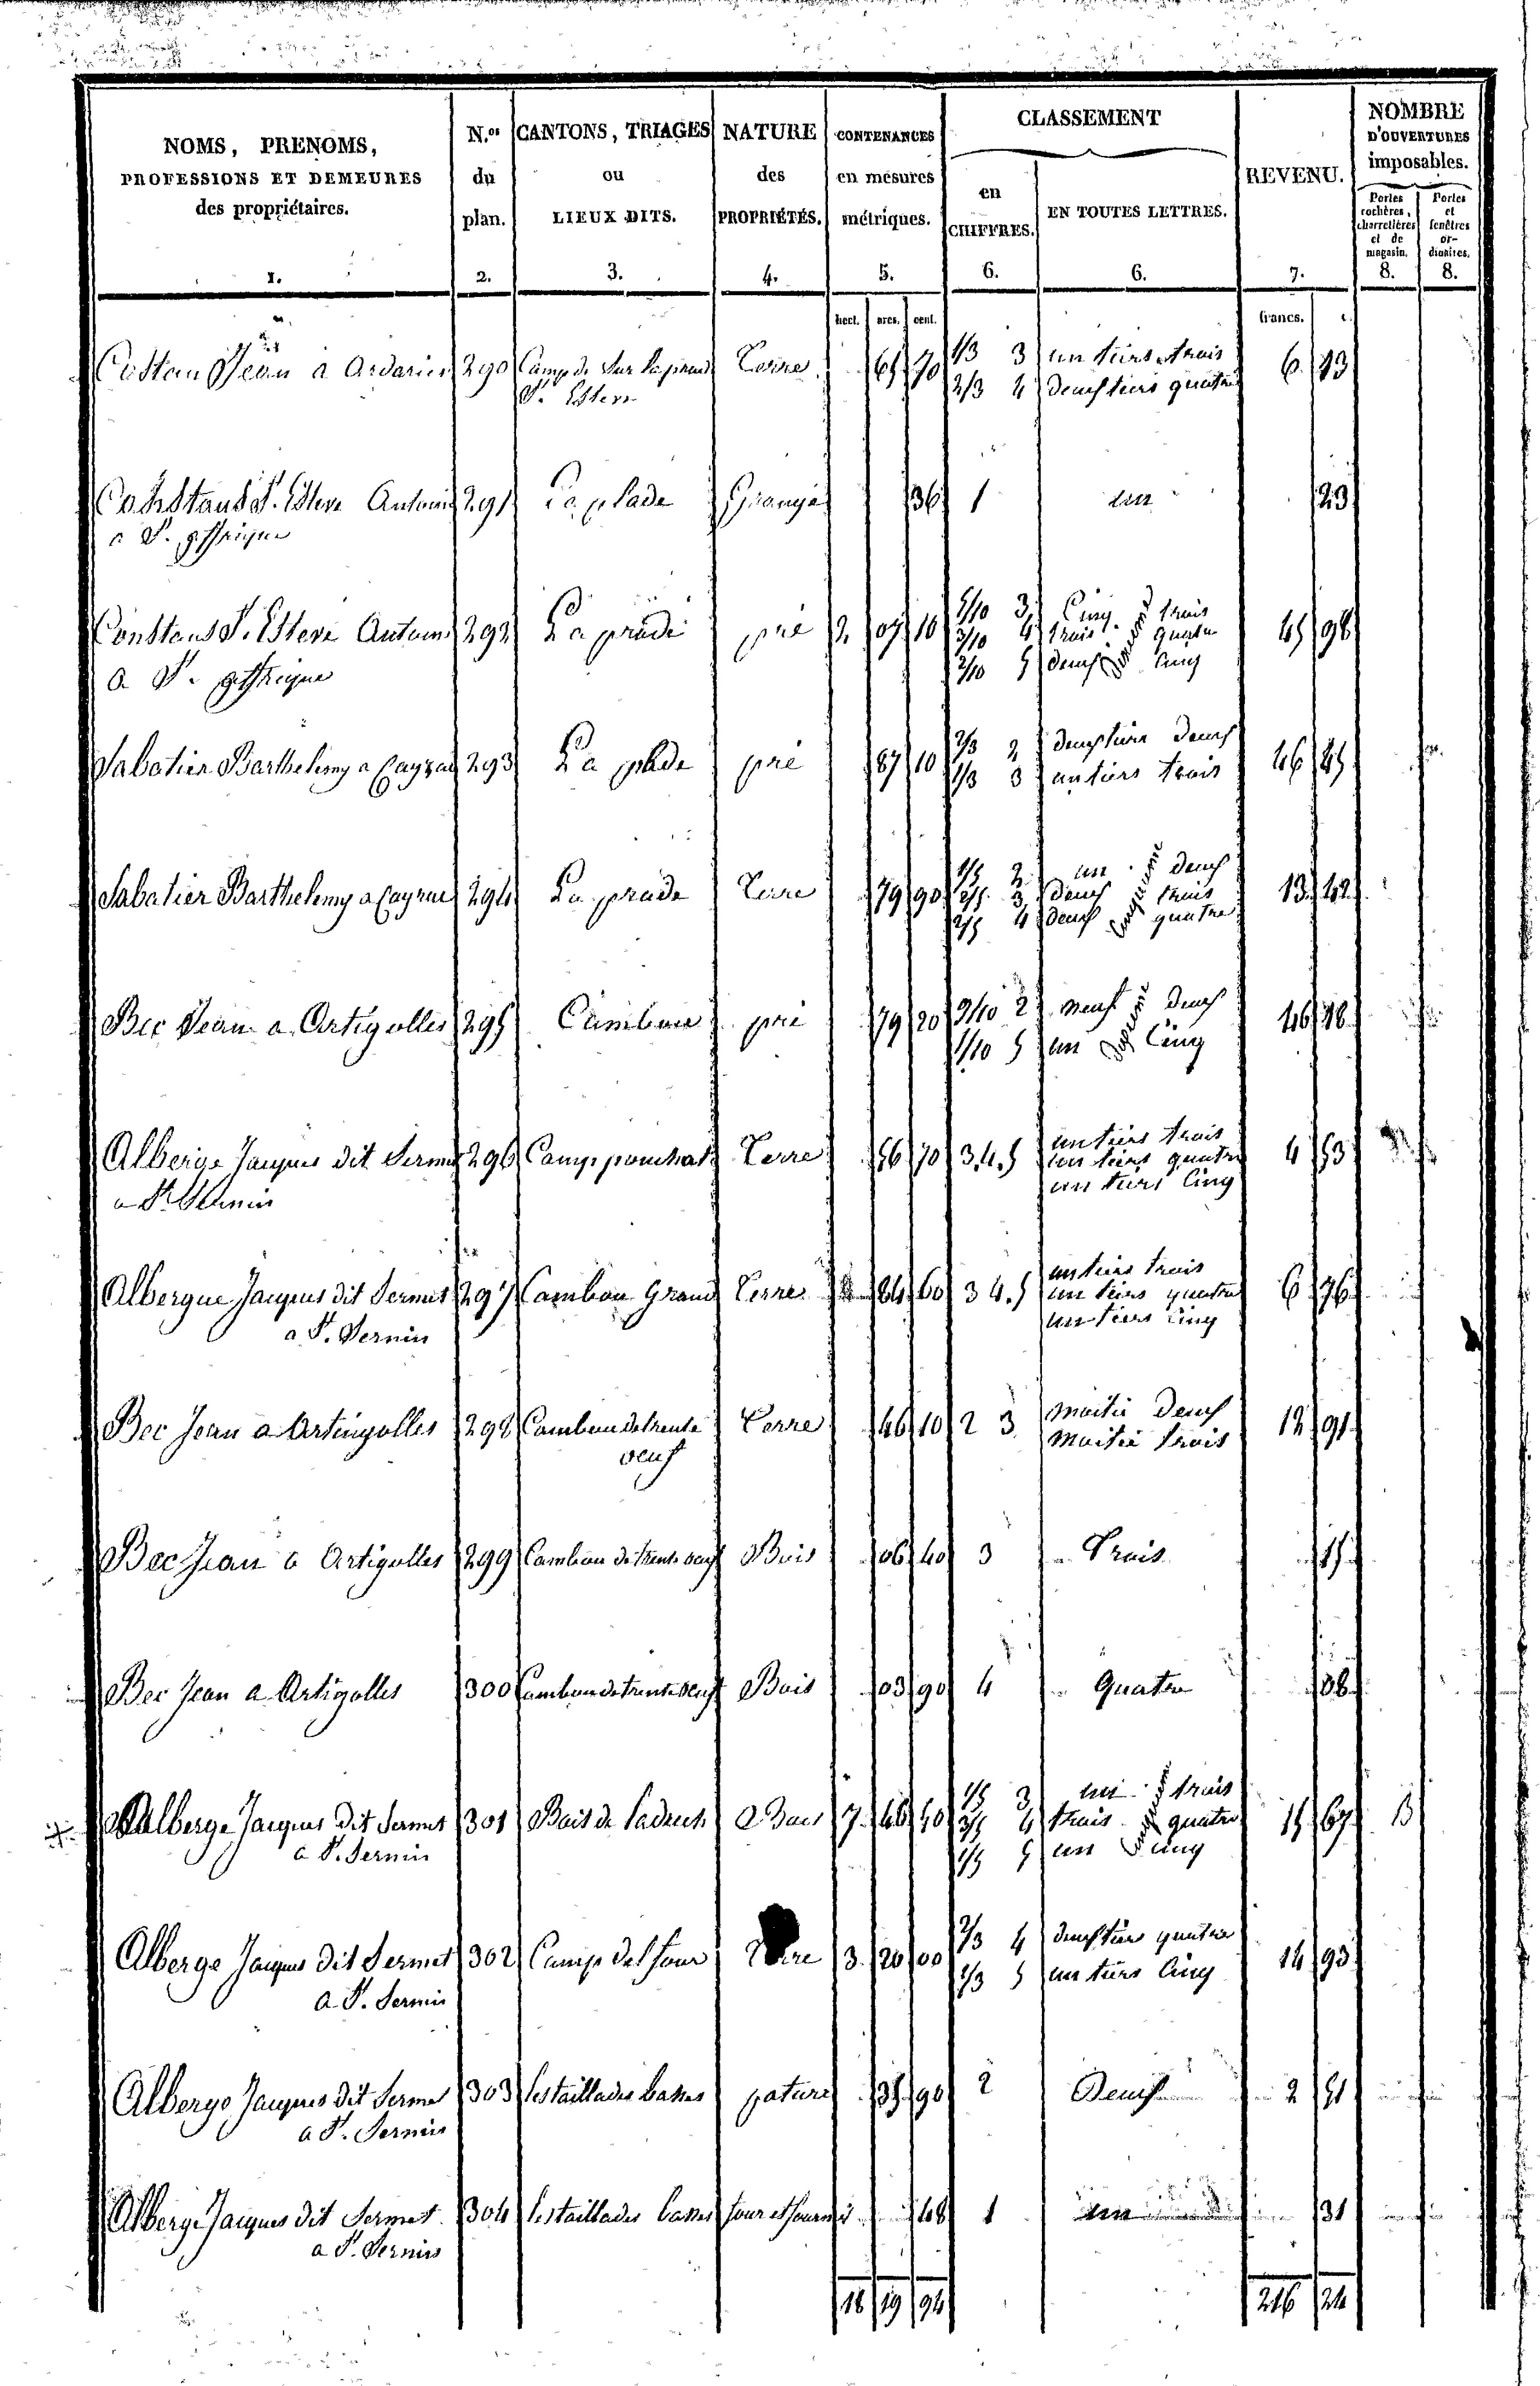 NOMS, PRENOMS,
PROFESSIONS ET DEMEURES
des propriétaires.
1.
N.os
du
plan.
2.
CANTONS, TRIAGES
ou
LIEUX DITS.
3.
NATURE
des
PROPRIÉTÉS.
4.
CONTENANCES
en mesures
métriques.
5.
CLASSEMENT
en
CHIFFRES.
6.
EN TOUTES LETTRES.
6.
REVENU.
7.
NOMBRE
D'OUVERTURES
imposables.
Portes cochères, charretières et de magasin.
8.
Portes et fenêtres ordinaires.
8.
hect. ares. cent. francs. c.
Jean a 290 Camp de Terre 70 1/3 3 un tiers trois 6
2/3 4 deux tiers quatre
St. Esteve
St. Esteve Antoine 291 Grange 36 1 un 23
a St.
Constans St. Esteve Antoine 292 La prade pré 2 07 10 5/10 3 Cinq trois 45 98
3/10 4 trois quatre
2/10 5 deux cinq
a St.
Sabatier Barthelemy a 293 La prade pré 87 10 2/3 2 deux tiers deux 46 45
1/3 3 un tiers trois
Sabatier Barthelemy a 294 La prade Terre 79 90 1/5 2 un deux 13 42
2/5 3 deux trois
2/5 4 deux quatre
Bec Jean a Artigolles 295 Cambon pré 79 20 9/10 2 neuf deux 46
1/10 5 un Cinq
Alberge Jacques dit Sermet 296 Camp Terre 56 70 3.4.5 un tiers trois 4 53
un tiers quatre
un tiers Cinq
a St. Sernin
Albergue Jacques dit Sermet 297 Cambon Grand Terre 84 60 3 4.5 un tiers trois 6 76
un tiers quatre
un tiers Cinq
a St. Sernin
Bec Jean a Artingolles 298 Cambon de trente Terre 46 10 2 3 Moitié Deux 12 91
Moitié trois
oeuf
Bec Jean a Artigolles 299 Cambon de trente oeuf Bois 06 40 3 Trois
Bec Jean a Artigolles 300 Cambon de trente oeuf Bois 03 90 4 Quatre 06
Alberge Jacques dit Sermet 301 Bois de Bois 7 46 40 1/5 3 un trois 15 67
3/5 4 trois quatre
1/5 5 un cinq
a St. Sernin
Alberge Jacques dit Sermet 302 Camp del four Terre 3 20 00 2/3 4 deux tiers quatre 14 93
1/3 5 un tiers Cinq
a St. Sernin
Alberge Jacques dit Sermet 303 les taillades basses pature 35 90 2 Deux 2 51
a St. Sernin
Alberge Jacques dit Sermet 304 les taillades basses 48 1 un 31
a St. Sernin
18 19 94 216 24